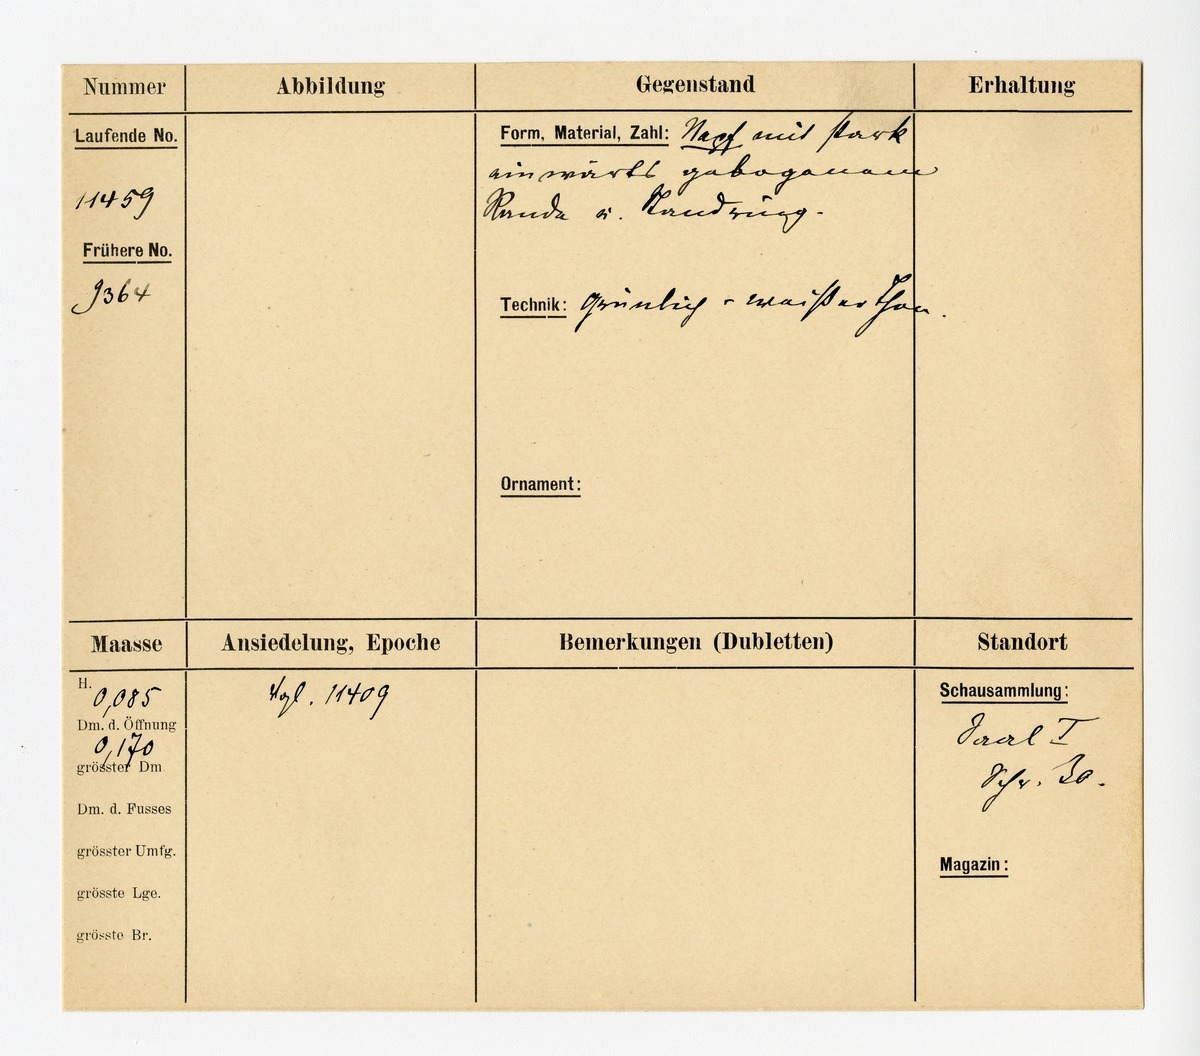 Nummer
Abbildung
Gegenstand
Erhaltung
Laufende No.
11459
Frühere No.
9364
Form, Material, Zahl: Napf mit stark
einwärts gebogenem
Rande u. Standring.
Technik: Grünlich-weißer Thon.
Ornament:
Maasse
Ansiedelung, Epoche
Bemerkungen (Dubletten)
Standort
H.
0,085
Dm. d. Öffnung
0,170
grösster Dm.
Dm. d. Fusses
grösster Umfg.
grösste Lge.
grösste Br.
Vgl. 11409
Schausammlung:
Saal I
Schr. 30.
Magazin: